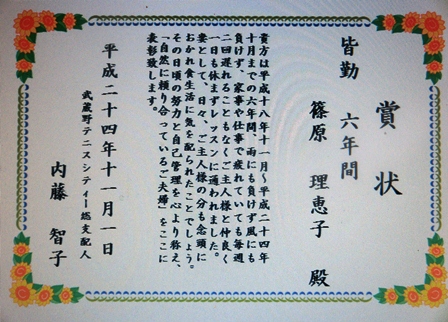 賞状
皆勤 六年間
篠原 理恵子 殿
貴方は平成十八年十一月～平成二十四年
十月までの六年間、雨にも負けず風にも
負けず、家事や仕事で疲れていても毎週
二回遅れることもなくご主人様と仲良く
一日も休まずレッスンに通われました。
妻として、日々、ご主人様の分も念頭に
おかれ食生活に気を配られたことでしょう。
その日頃の努力と自己管理を心より称え、
「自然に頼り合っているご夫婦」をここに
表彰致します。
平成二十四年十一月一日
武蔵野テニスシティー総支配人
内藤 智子